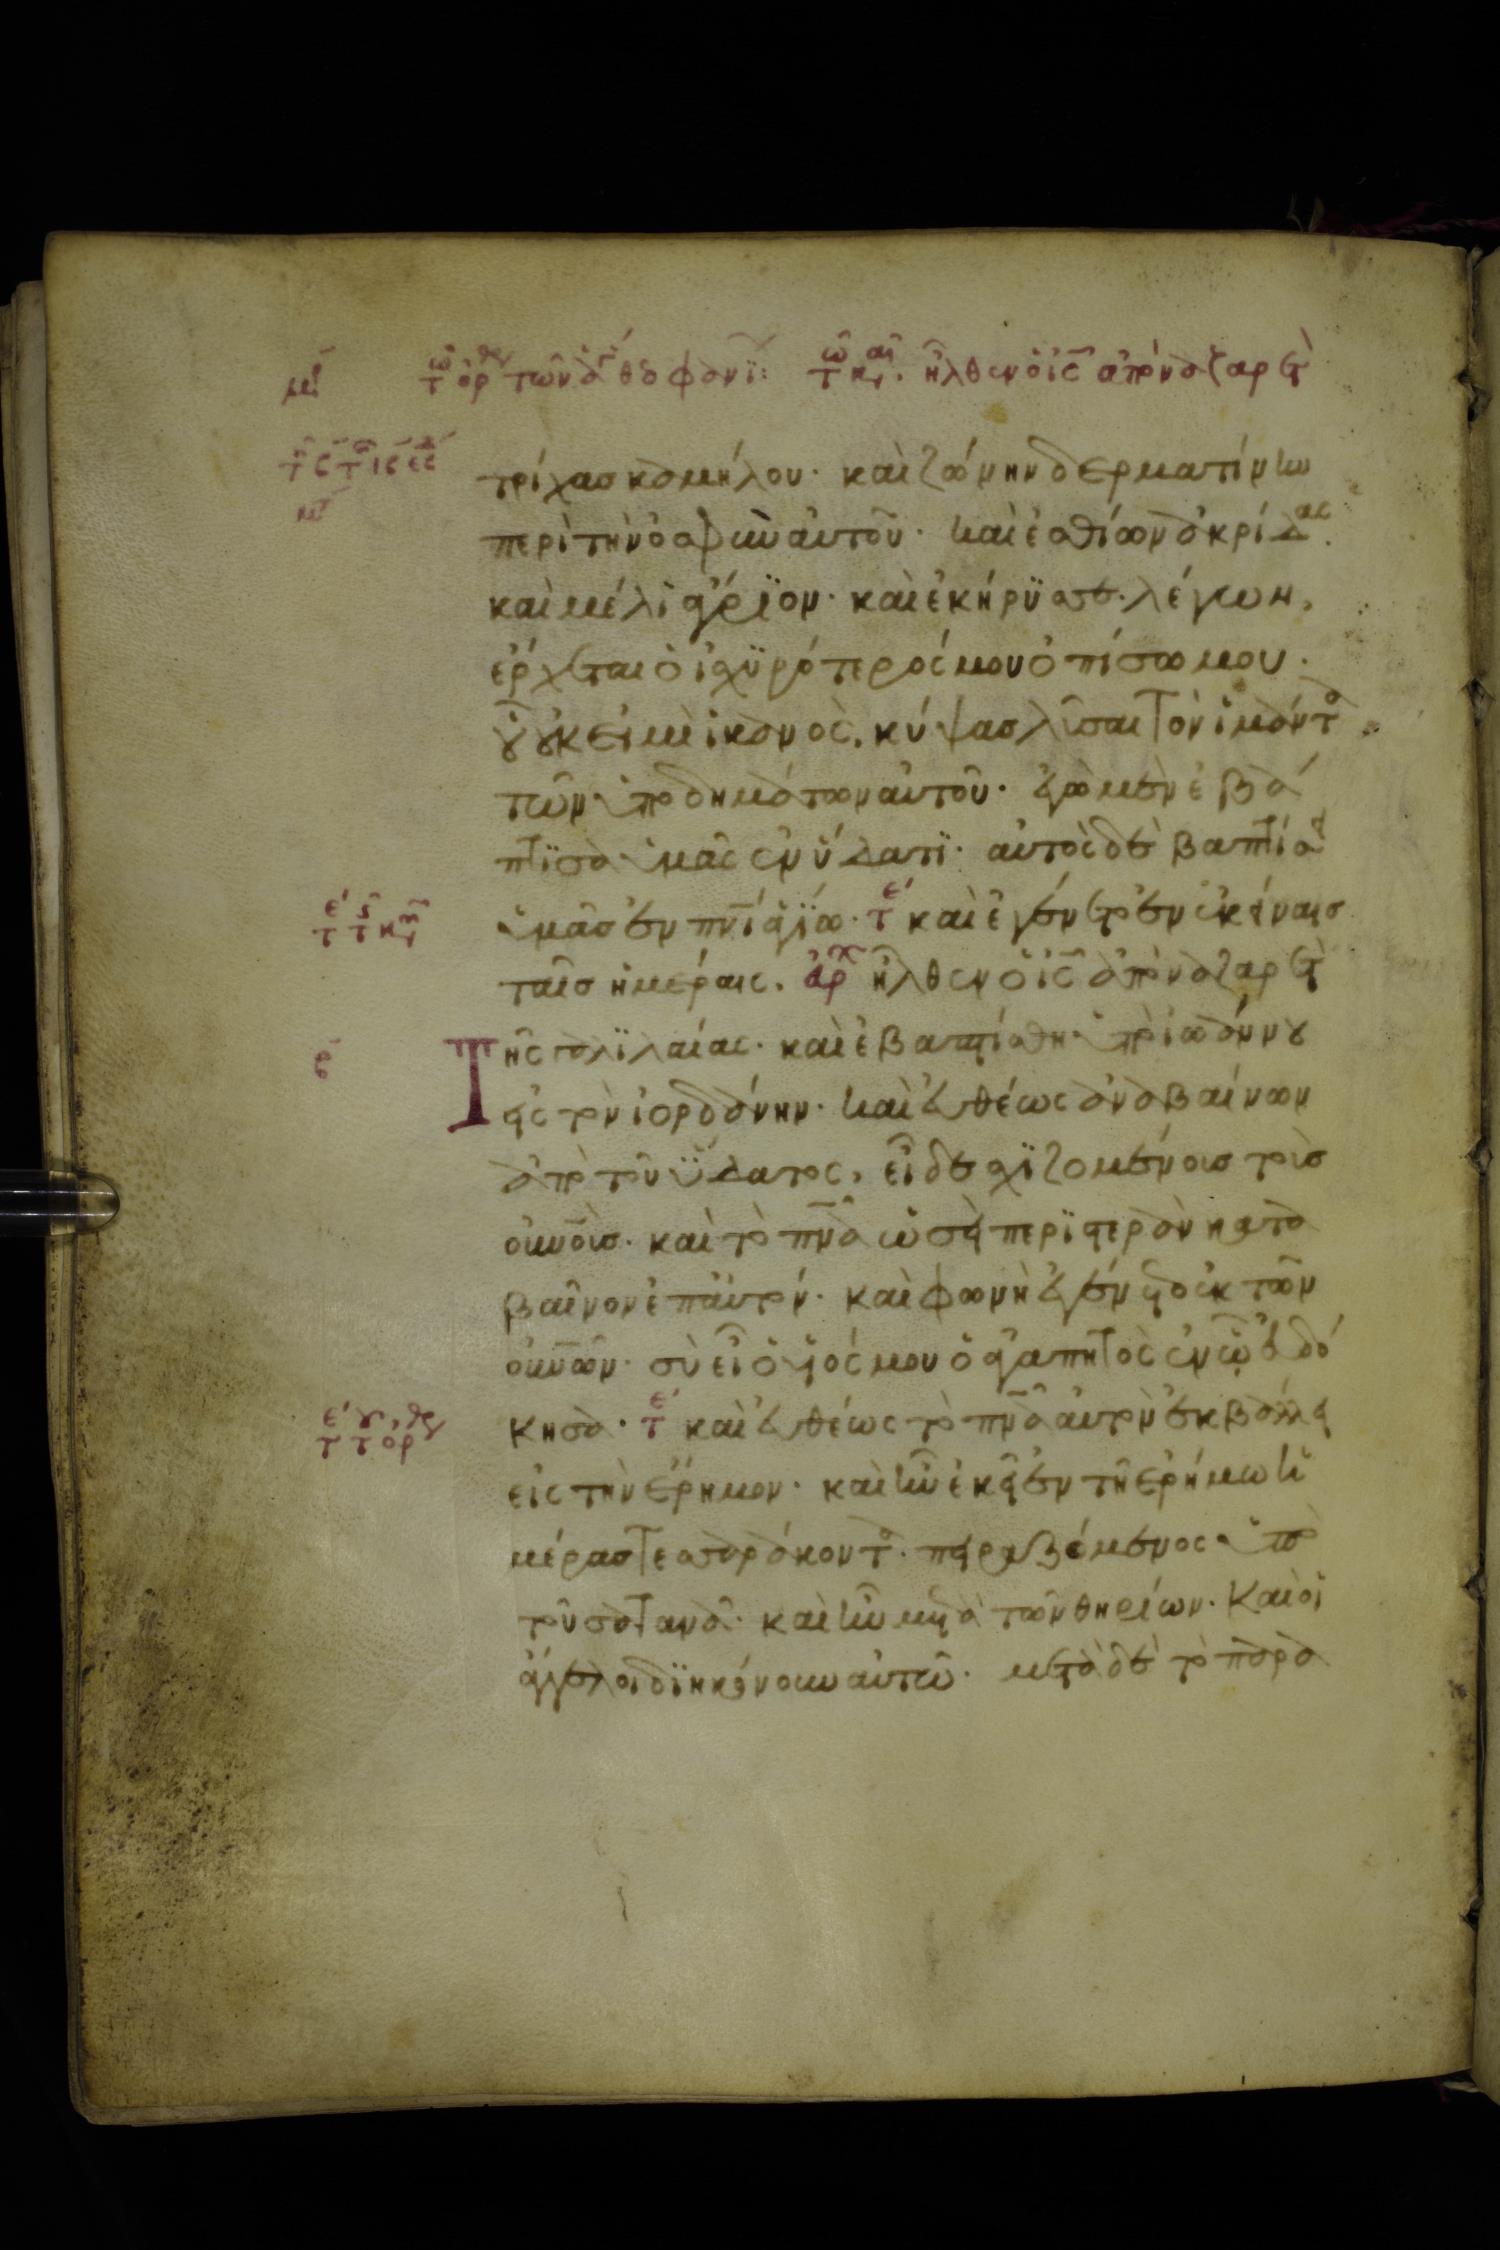 τρίχας καμήλου· καὶ ζώνην δερματίνην
περὶ τὴν ὀσφὺν αὐτοῦ· καὶ ἐσθίων ἀκρίδας.
καὶ μέλι ἄγριον· καὶ ἐκήρυσσε λέγων,
ἔρχεται ὁ ἰσχυρότερός μου ὀπίσω μου.
οὗ οὐκ εἰμὶ ἱκανὸς, κύψας λῦσαι τὸν ἱμάντα
τῶν ὑποδημάτων αὐτοῦ· ἐγὼ μὲν ἐβά
πτισα ὑμᾶς ἐν ὕδατι· αὐτὸς δὲ βαπτίσει
ὑμᾶς ἐν πνι ἁγίω· τε καὶ ἐγένετο ἐν ἐκείναις
ταῖς ἡμέραις. ἀρχ ἦλθεν ὁ ις ἀπὸ ναζαρετ
Τῆς γαλιλαίας· καὶ ἐβαπτίσθη ὑπὸ ἰωάννου
εἰς τὸν ἰορδάνην· καὶ εὐθέως ἀναβαίνων
ἀπὸ τοῦ ὕδατος, εἶδε σχιζομένους τοὺς
ουνους· καὶ τὸ πνα ὡσεὶ περιστερὰν κατα
βαῖνον ἐπ αὐτόν· καὶ φωνὴ ἐγένετο ἐκ τῶν
ουνων· σὺ εἶ ὁ υἱός μου ὁ ἀγαπητὸς ἐν ᾧ εὐδό
κησα· τε καὶ εὐθέως τὸ πνα αὐτὸν ἐκβάλλει
εἰς τὴν ἔρημον· καὶ ἦν ἐκεῖ ἐν τῇ ἐρήμω ἡ
μέρας τεσσαράκοντα· πειραζόμενος ὑπὸ
τοῦ σατανᾶ· καὶ ἦν μετὰ τῶν θηρίων· Καὶ οἱ
ἄγγελοι διηκόνουν αὐτῶ· μετὰ δὲ τὸ παρα